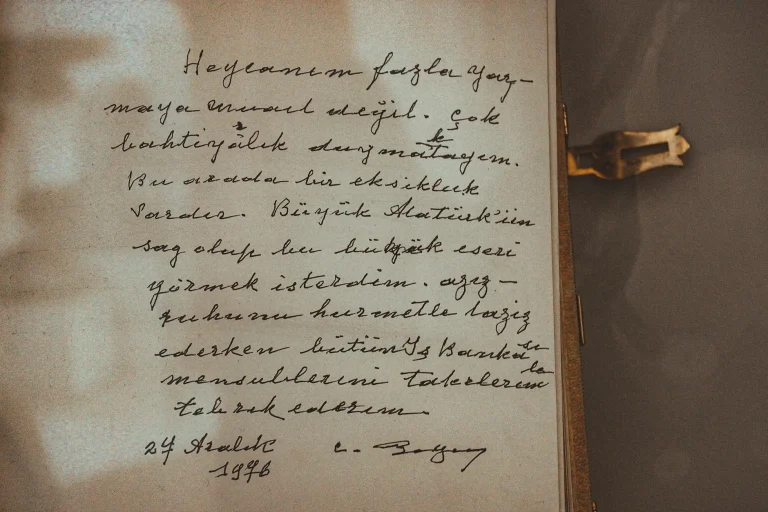 Heyecanım fazla yaz-
maya muail değil. Çok
bahtiyarlık duymaktayım.
Bu arada bir eksikluk
vardır. Büyük Atatürk'ün
sag olup bu büyük eseri
görmek isterdim. aziz-
ruhunu hurmetle taziz
ederken bütün İş Bankası
mensublerini takdlerlerim
tebrik ederim.
24 Aralık
1976
C. Bayar